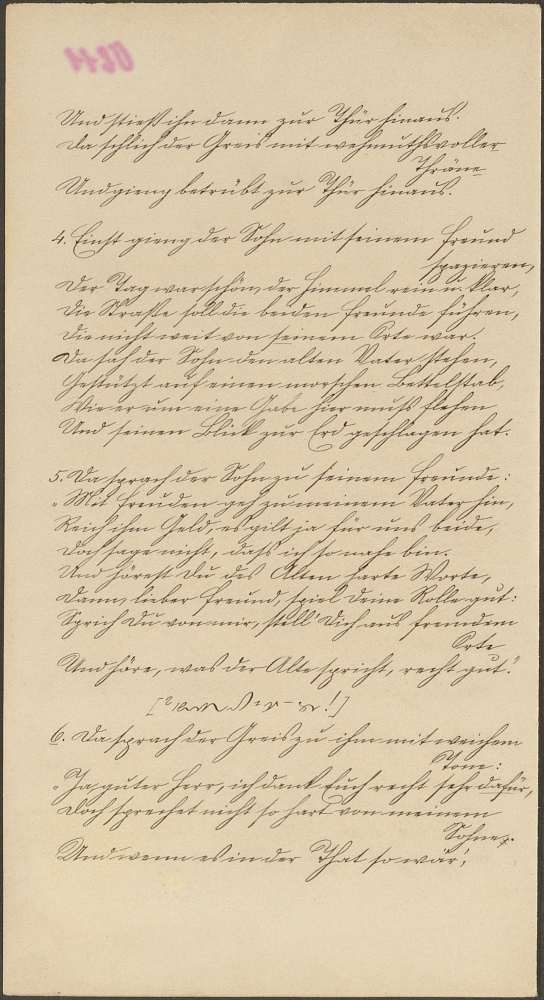 Und stieß ihn dann zur Thür hinaus.
Da schlich der Greis mit wehmuthsvoller
Thräne
Und gieng betrübt zur Thür hinaus.
4. Einst gieng der Sohn mit seinem Freund
spazieren,
Der Tag war schön, der Himmel rein u. klar,
Die Straße soll die beiden Freunde führen,
Die nicht weit von seinem Orte war.
Da sah der Sohn den alten Vater stehen,
Gestützt auf einen morschen Bettelstab,
Wie er um eine Gabe hier muß flehen
Und seinen Blick zur Erd geschlagen hat.
5. Da sprach der Sohn zu seinem Freunde:
„Mit Freuden geh zu meinem Vater hin,
Reich ihm Geld, es gilt ja für uns beide,
Doch sage nicht, daß ich so nahe bin.
Und hörest Du des Alten harte Worte,
Dann, lieber Freund, spiel Deine Rolle gut:
Sprich Du von mir, stell' Dich aus fremdem
Orte
Und höre, was der Alte spricht, recht gut."
6. Da sprach der Greis zu ihm mit weichem
Tone:
„Ja, guter Herr, ich dank Euch recht sehr dafür,
Doch sprechet nicht so hart von meinem
Sohne,
Und wenn es in der That so wär',